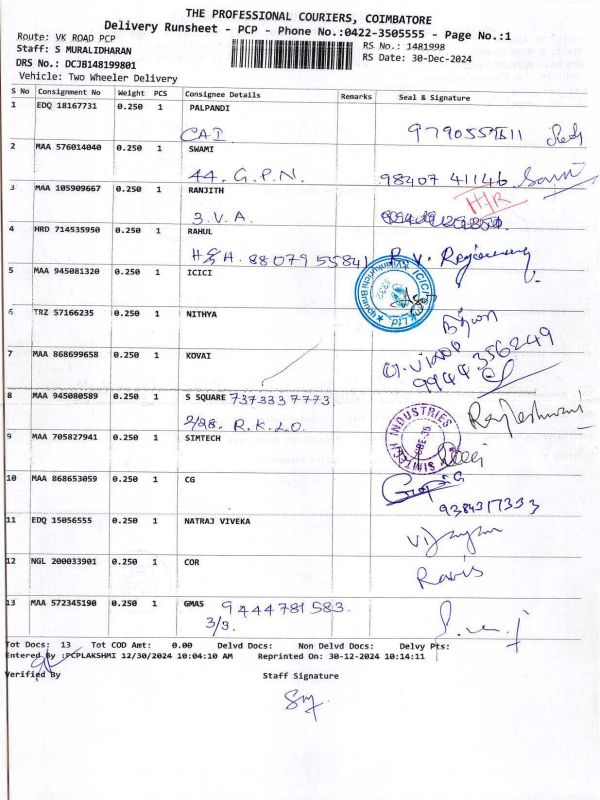 THE PROFESSIONAL COURIERS, COIMBATORE
Delivery Runsheet - PCP - Phone No.:0422-3505555 - Page No.:1
Route: VK ROAD PCP
Staff: S MURALIDHARAN
RS No.: 1481998
DRS No.: DCJB148199801
RS Date: 30-Dec-2024
Vehicle: Two Wheeler Delivery
S No Consignment No Weight PCS Consignee Details Remarks Seal & Signature
1 EDQ 18167731 0.250 1 PALPANDI
CAI
2 MAA 576014040 0.250 1 SWAMI
44. G.P.N. 98407 41146
3 MAA 105909667 0.250 1 RANJITH
3.V.A.
4 HRD 714535950 0.250 1 RAHUL
H&H. 88079 55841
5 MAA 945081320 0.250 1 ICICI
6 TRZ 57166235 0.250 1 NITHYA
7 MAA 868699658 0.250 1 KOVAI
9944 356249
8 MAA 945080589 0.250 1 S SQUARE 7373337773
2/28. R.K.L.O. Rajeshwari
9 MAA 705827941 0.250 1 SIMTECH
SIMTECH INDUSTRIES
CBE-35
10 MAA 868653059 0.250 1 CG
9384317333
11 EDQ 15056555 0.250 1 NATRAJ VIVEKA
12 NGL 200033901 0.250 1 COR
13 MAA 572345190 0.250 1 GMAS 9444781583.
3/3.
Tot Docs: 13 Tot COD Amt: 0.00 Delvd Docs: Non Delvd Docs: Delvy Pts:
Entered By :PCPLAKSHMI 12/30/2024 10:04:10 AM Reprinted On: 30-12-2024 10:14:11
Verified By Staff Signature